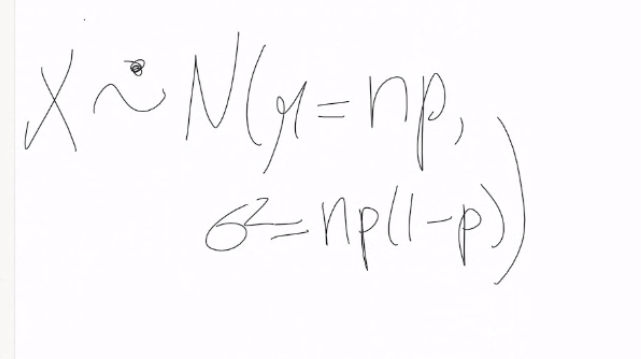 X ∼̇ N(μ = np,
σ² = np(1-p))